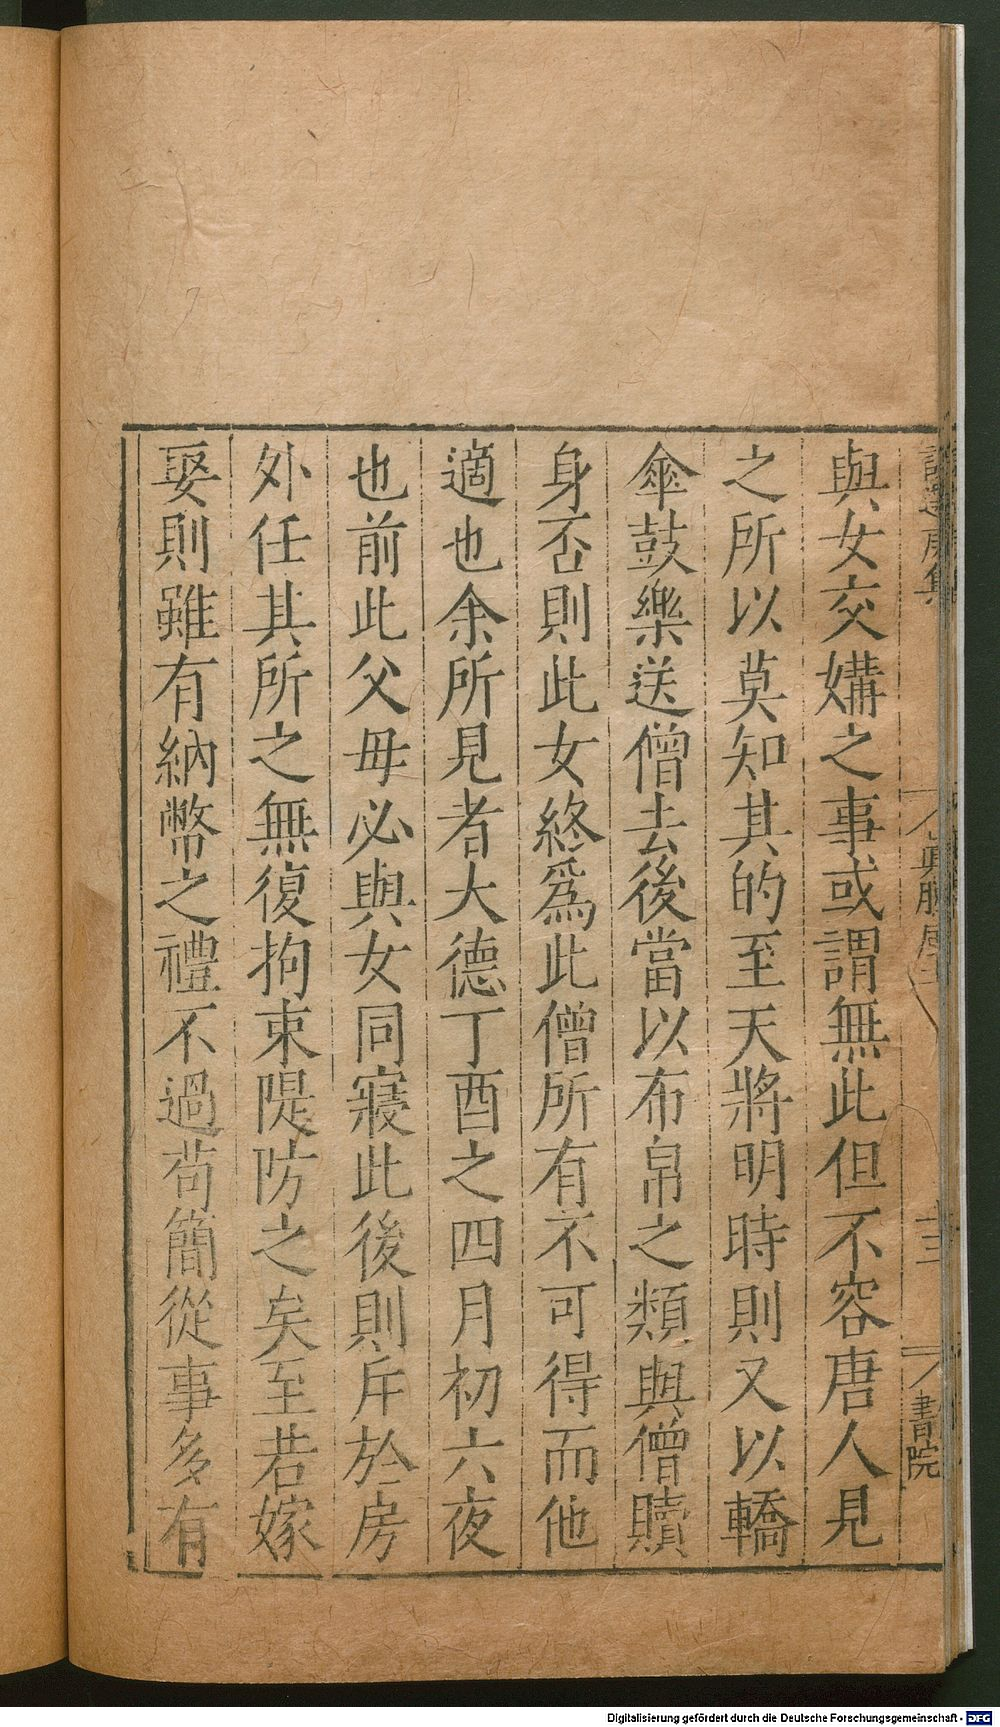 與女交媾之事或謂無此但不容唐人見
之所以莫知其的至天將明時則又以轎
傘鼓樂送僧去後當以布帛之類與僧贖
身否則此女終爲此僧所有不可得而他
適也余所見者大德丁酉之四月初六夜
也前此父母必與女同寢此後則斥於房
外任其所之無復拘束隄防之矣至若嫁
娶則雖有納幣之禮不過苟簡從事多有
眞臘風土
書院
Digitalisierung gefördert durch die Deutsche Forschungsgemeinschaft - DFG